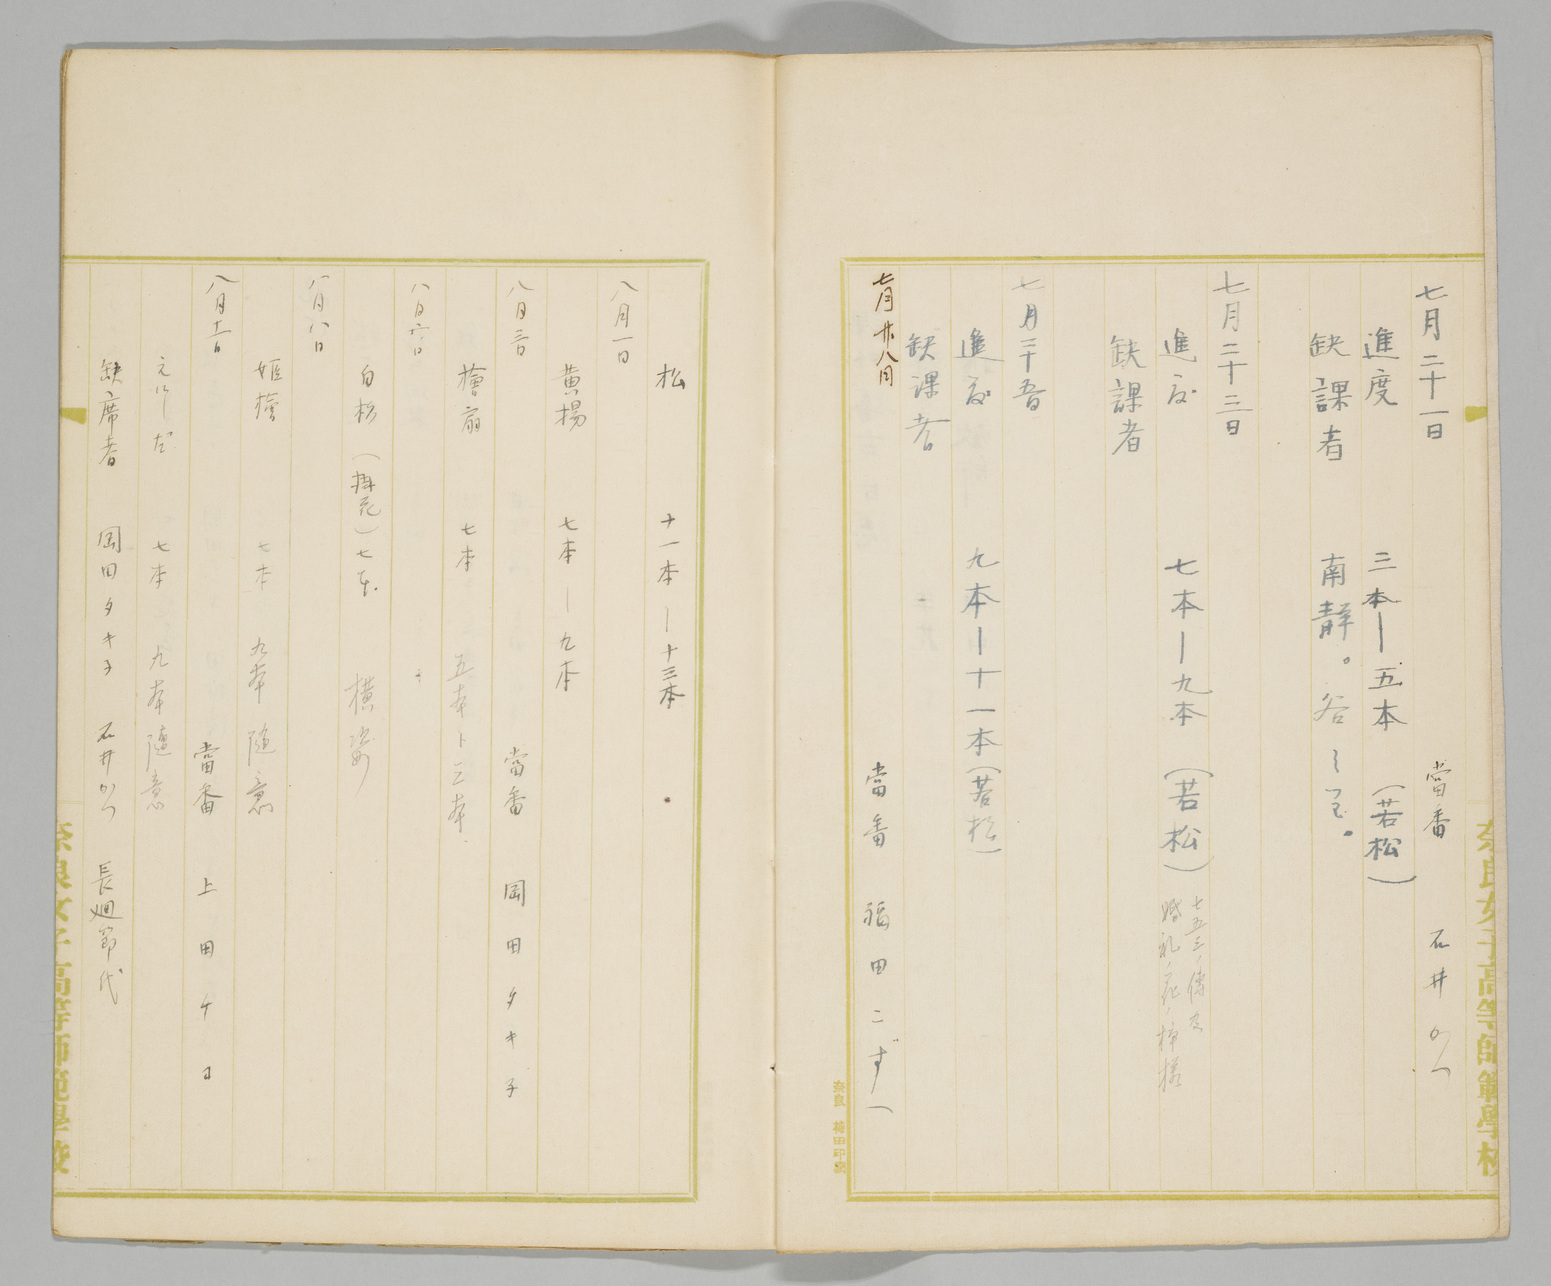 七月二十一日　當番　石井かつ
進度　三本―五本（若松）
缺課者　南静。谷
七月二十三日
進度　七本―九本（若松）
七五三ノ傳及
婚礼ノ花ノ挿様
缺課者
七月二十五日
進度　九本―十一本（若松）
缺課者
七月廿八日　當番　福田こずへ
奈良女子高等師範學校
松　十一本―十三本
八月一日
黄楊　七本―九本
八月三日　當番　岡田タキ子
檜扇　七本　五本ト三本
八月六日
白杉（掛花）七本　横姿
八月八日
姫檜　七本　九本　随意
八月十一日　當番　上田ケヨ
七本　九本　随意
缺席者　岡田タキ子　石井かつ　長廻節代
奈良女子高等師範學校